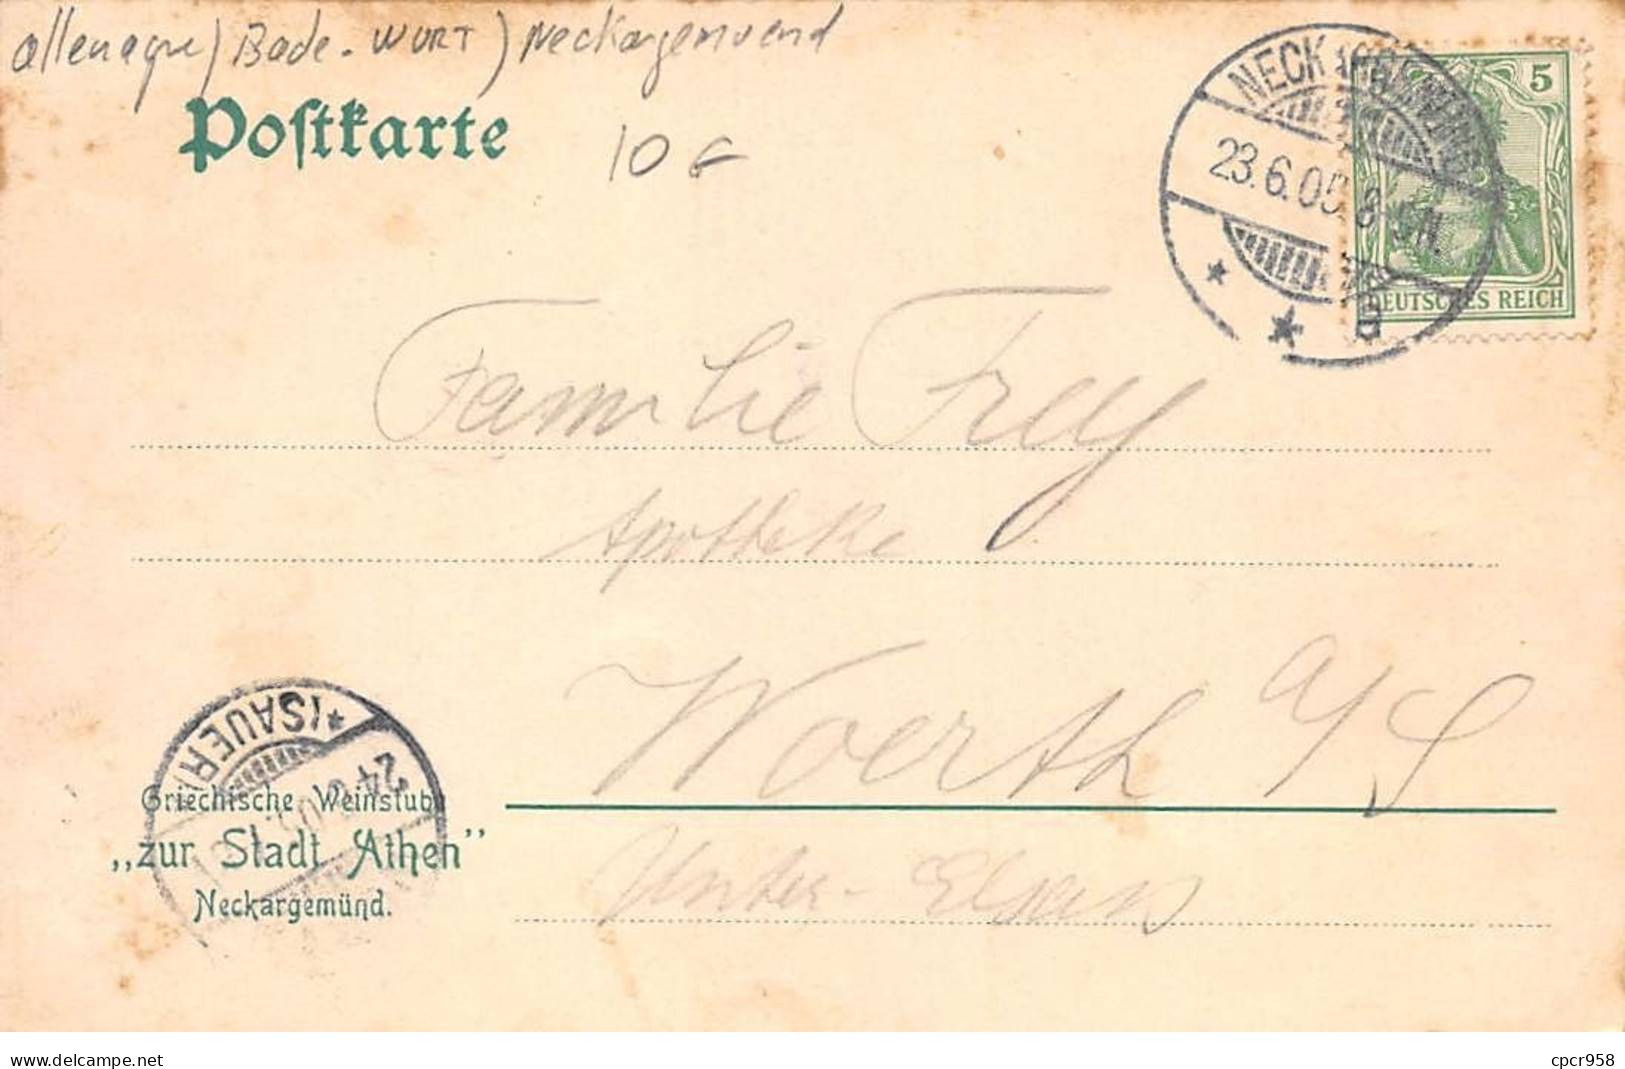 allemagne / Bade-WURT / Neckargemuend
Poſtkarte
10 €
NECKARGEMÜND
23.6.05. 8-9N.
a
5
DEUTSCHES REICH
Familie Frey
Apotheke
Woerth a/S
Unter-Elsass
(SAUER)
24
Griechische Weinstube
„zur Stadt Athen”
Neckargemünd.
www.delcampe.net
cpcr958